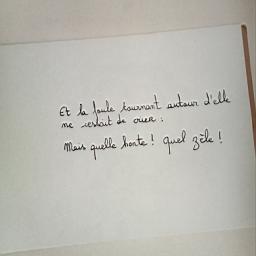 Et la foule tournant autour d'elle
ne cessait de crier :
Mais quelle honte ! Quel zèle !